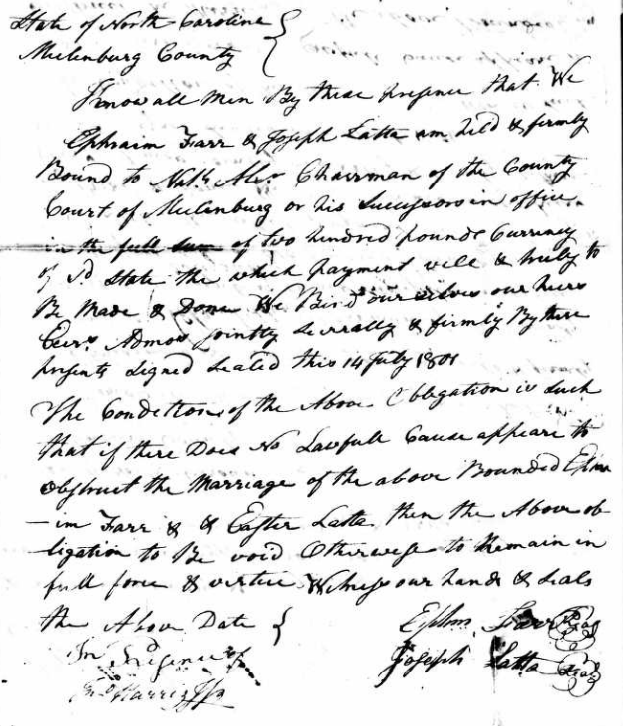 State of North Carolina
Mulenburg County
Know all men By these presence that We
Ephraim Farr & Joseph Latta am held & firmly
Bound to Nath Alex Chairman of the County
Court of Mulenburg or his Successors in office
in the full sum of two hundred pounds Currency
of sd State the which payment well & truly to
Be Made & Done We Bind our selves our heirs
Exers Admors jointly severally & firmly By these
presents signed sealed this 14 July 1801
The Condition of the Above Obligation is such
that if there Does No Lawfull Cause appeare to
obstruct the Marriage of the above Bounded Ephra
-im Farr & & Easter Latta then the Above ob
-ligation to Be void Otherwise to Remain in
full force & virtue Witness our hands & seals
the Above Date
In Presence of
Ephm Farr Seal
Joseph Latta Seal